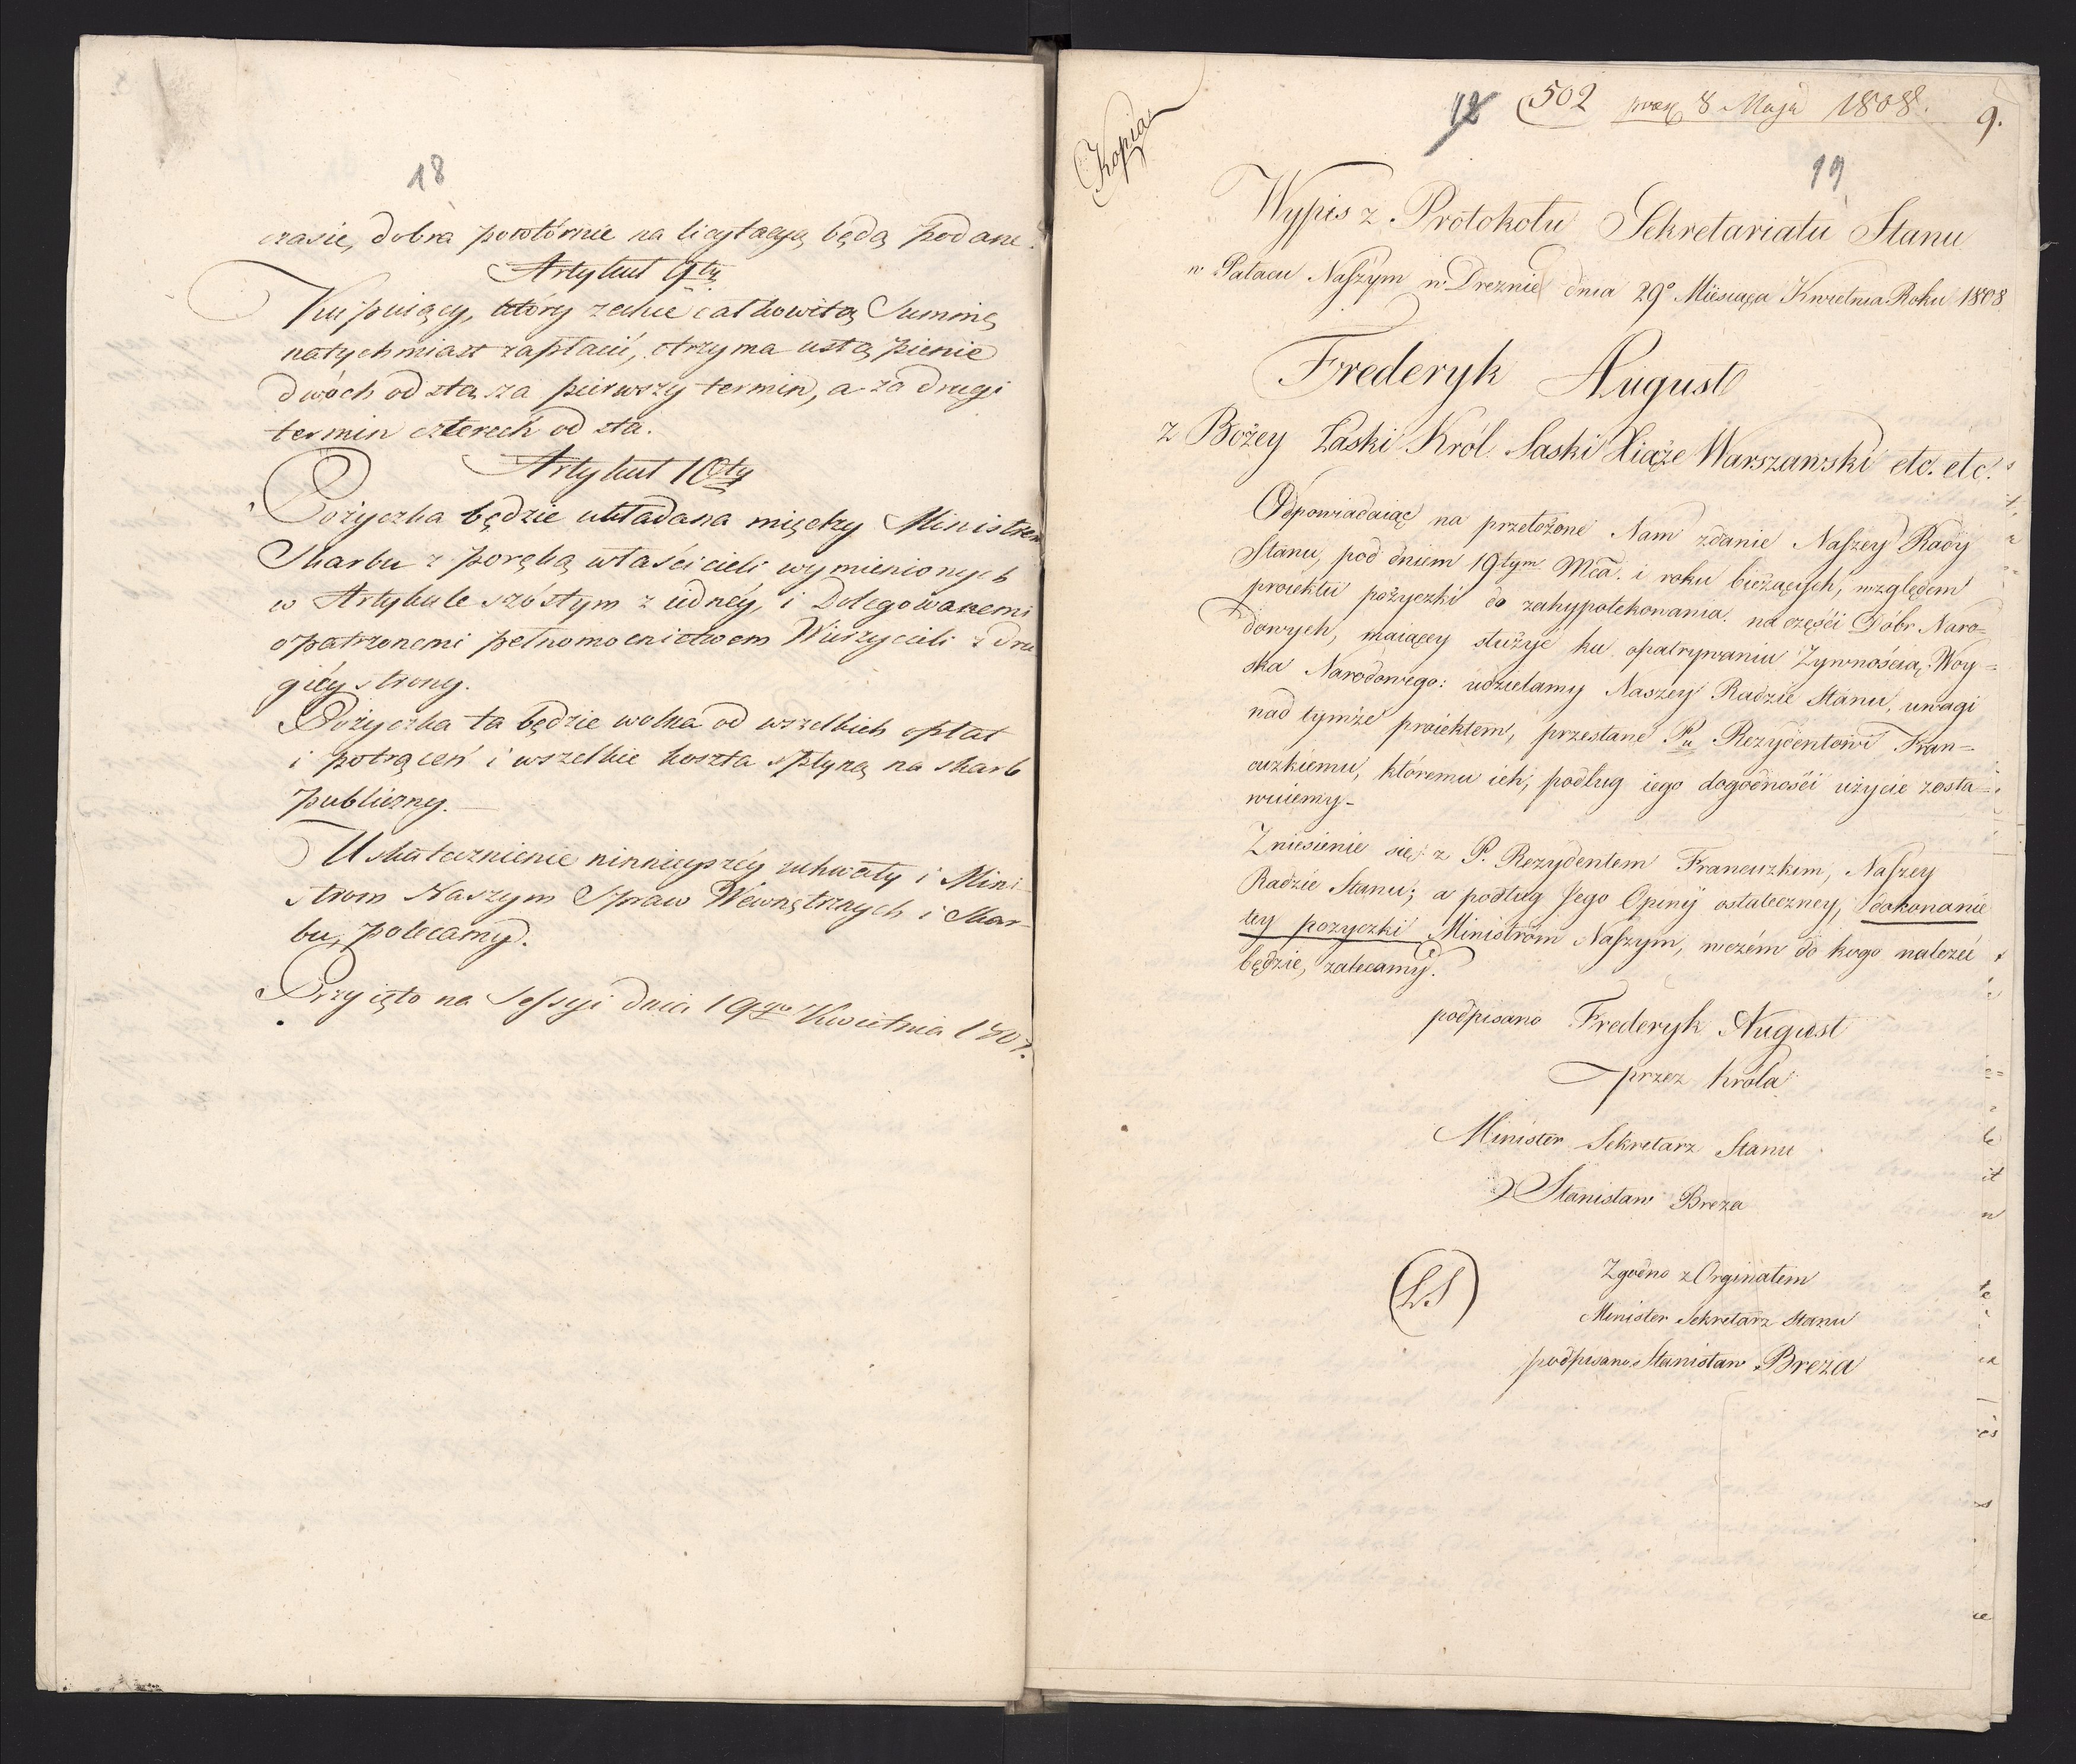 18
czasie, dobra powtórnie na licytacyą będą podane.
Artykuł 9ty
Kupuiący, który zechce całkowitą Summę
natychmiast zapłacić, otrzyma ustąpienie
dwóch od sta, za pierwszy termin, a za drugi
termin czterech od sta.
Artykuł 10ty
Pożyczka będzie układana między Ministrem
Skarbu z poręką właścicieli wymienionych
w Artykule szóstym z iednéy, i Delegowanemi
opatrzonemi pełnomocnictwem Wierzycieli z dru
giéy strony.
Pożyczka ta będzie wolna od wszelkich opłat
i potrąceń i wszelkie koszta spłyną na skarb
publiczny.
Uskutecznienie ninnieyszéy uchwały i Mini
strom Naszym Spraw Wewnętrznych i Skar-
bu, polecamy.
Przyięto na Sessyi dnia 19go Kwietnia 1808.
Kopia
12 502 praes 8 Maja 1808. 9.
19
Wypis z Protokołu Sekretariatu Stanu
w Pałacu Naszym w Dreznie dnia 29o Miesiąca Kwietnia Roku 1808
Frederyk August
z Bożey Łaski Król Saski Xiąże Warszawski etc. etc.
Odpowiadaiąc na przełożone Nam zdanie Naszey Rady
Stanu, pod dniem 19tym Mca. i roku bieżących, względem
proiektu pożyczki do zahypotekowania na części Dóbr Naro=
dowych, maiącey służyć ku opatrywaniu Żywnością, Woy=
ska Narodowego: udzielamy Naszey Radzie Stanu, uwagi
nad tymże proiektem, przesłane Pu Rezydentowi Fran=
cuzkiemu, któremu ich, podług iego dogodności użycie zosta=
wuiemy-
Zniesienie się z P. Rezydentem Francuzkim, Naszey
Radzie Stanu; a podług Jego Opinij ostateczney, dokonanie
tey pożyczki Ministróm Naszym, wczém do kogo należeć
będzie, zalecamy.
podpisano Frederyk August
przez króla
Minister Sekretarz Stanu
Stanisław Breza
(LS)
Zgodno z Orginałem
Minister Sekretarz Stanu
podpisano Stanisław Breza